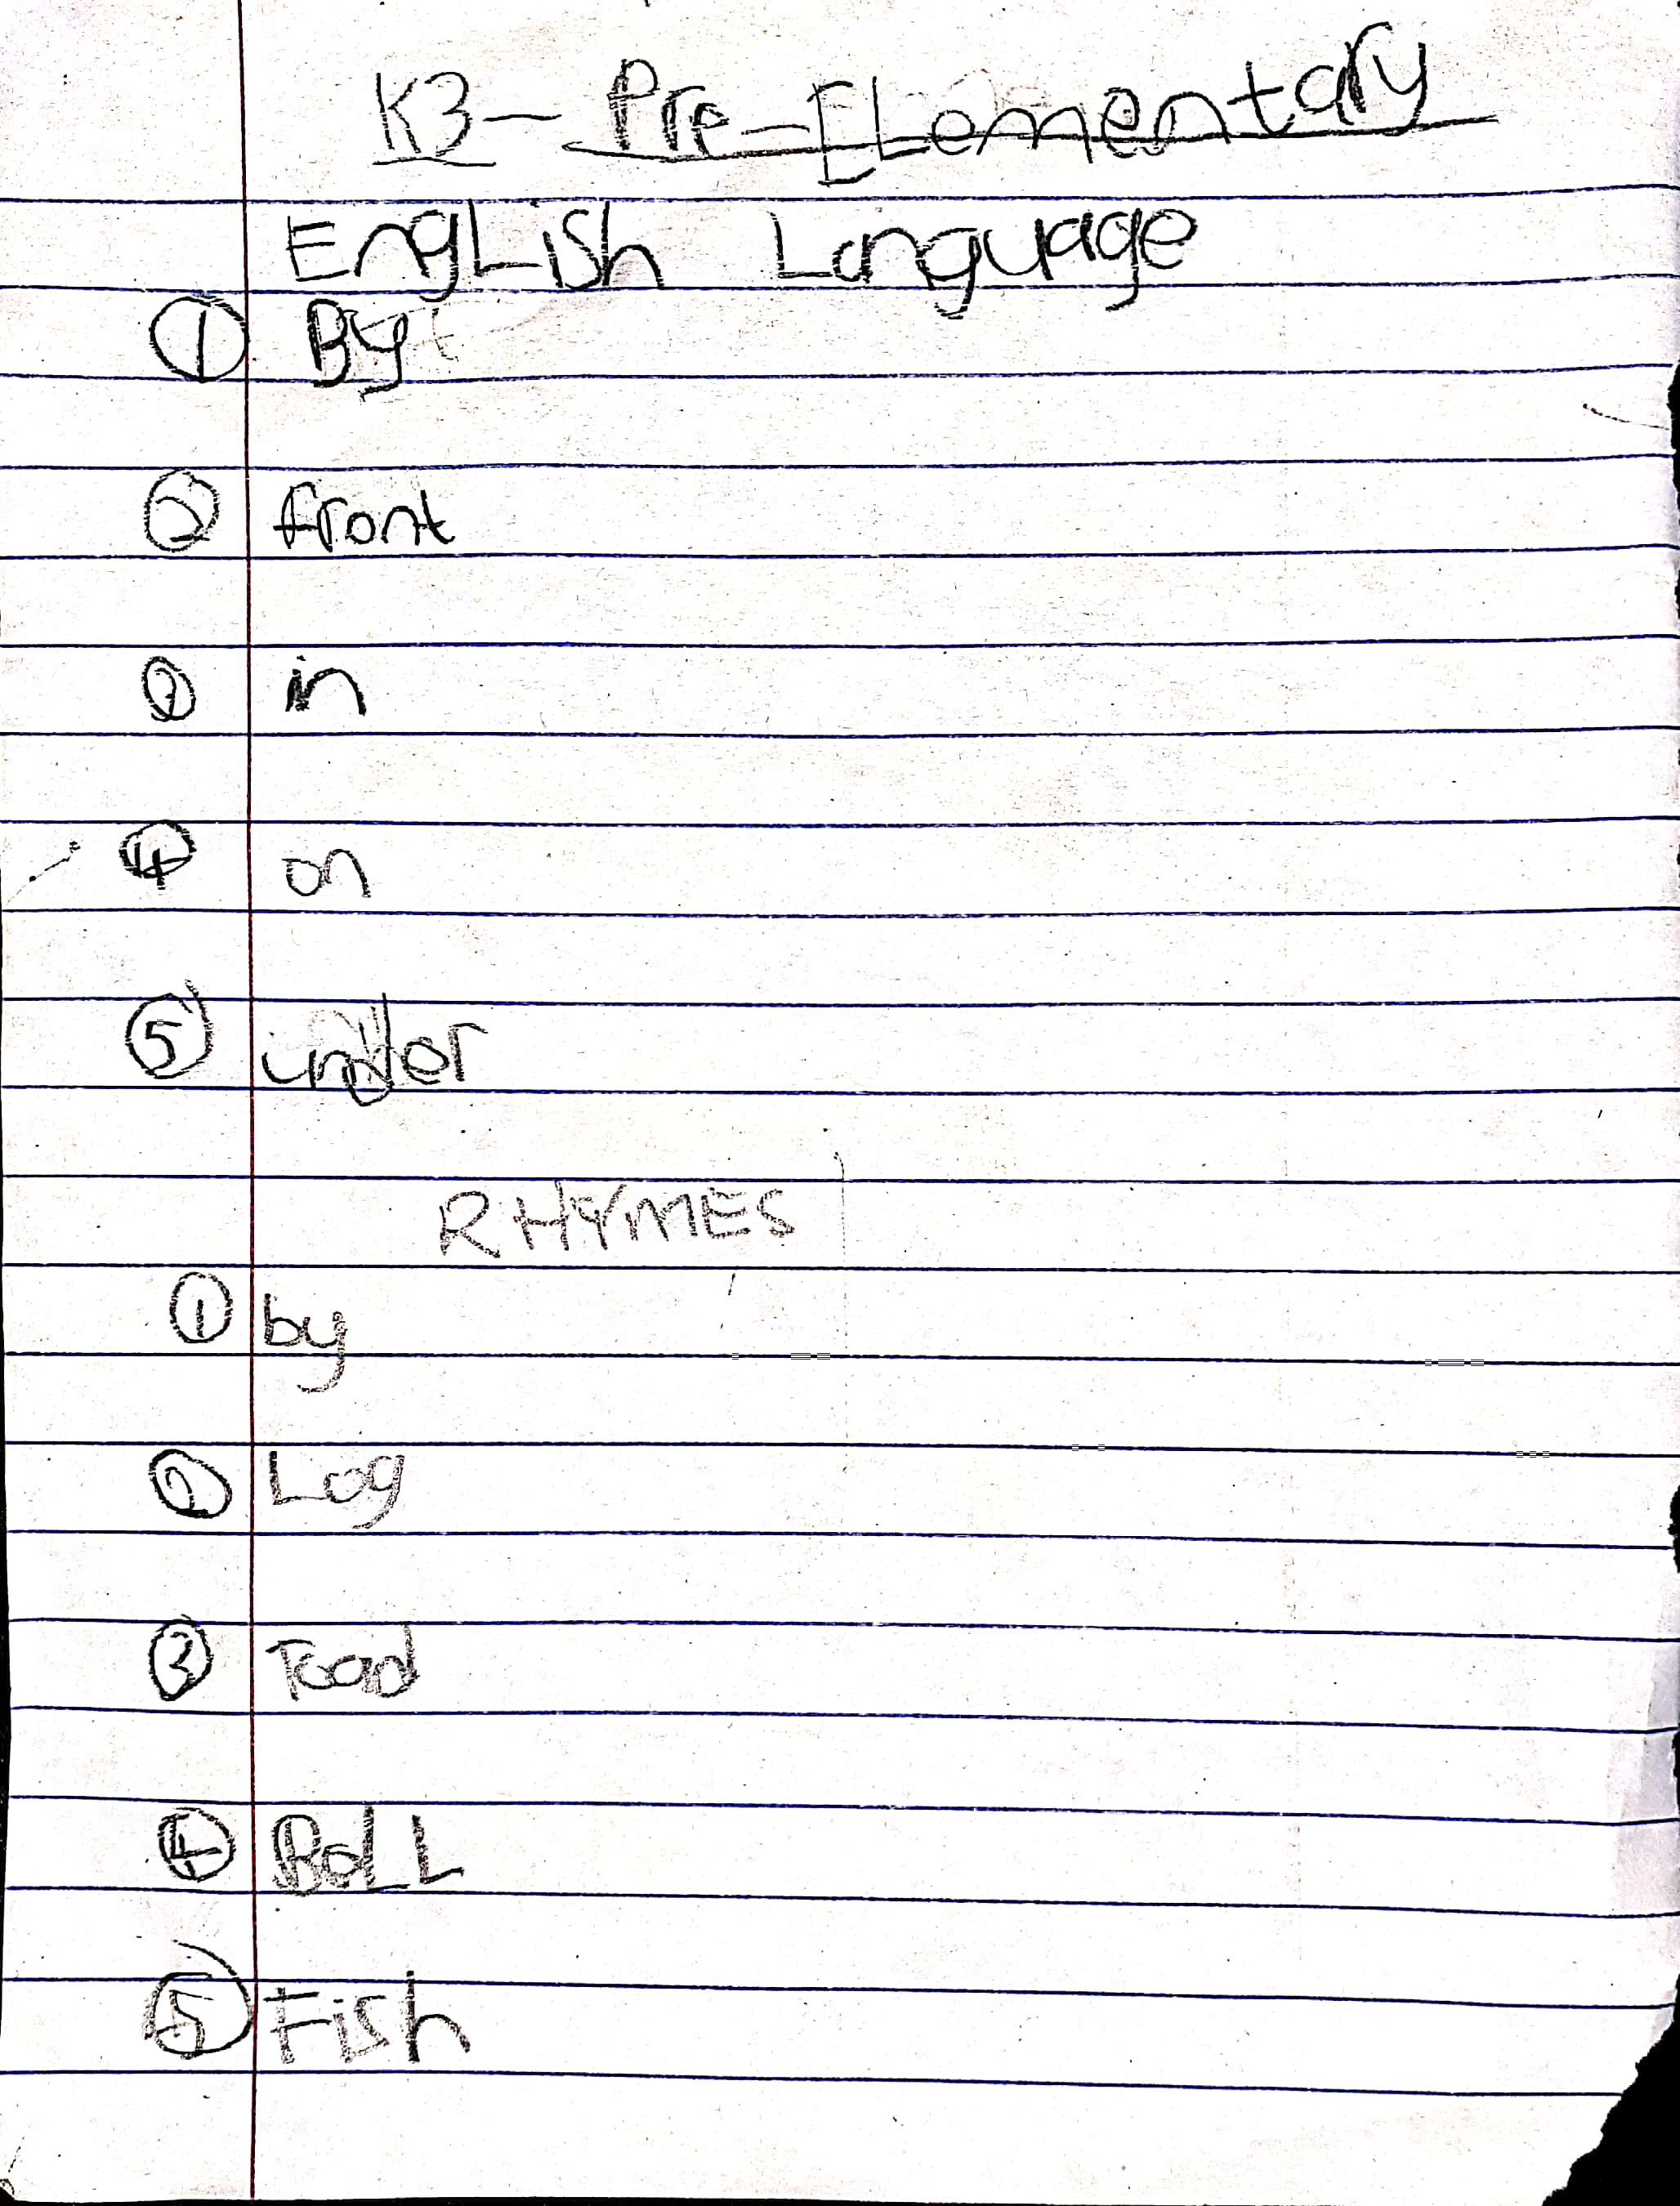 K3- Pre-ELementary
EngLish Language
① By
② front
③ in
④ on
⑤ under
RHYMES
① by
② Log
③ Toad
④ BaLL
⑤ Fish